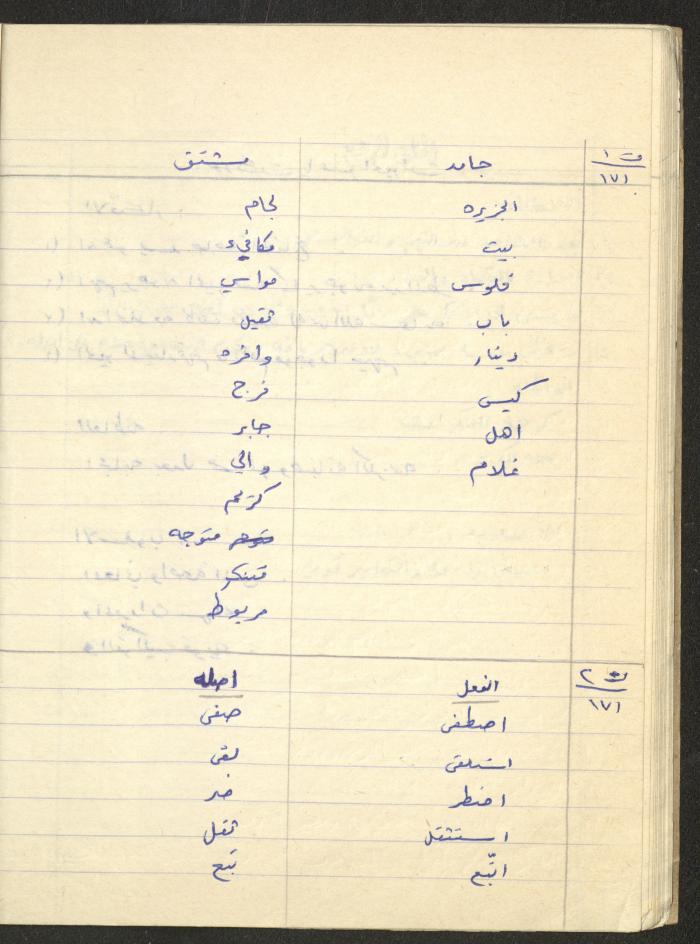 ت ١ / ١٧١ جامد مشتق
الجزيره لجام
بيت مكافيء
فلوس مواسي
باب ثقيل
دينار وافره
كيس فرج
اهل جابر
غلام والي
كريم
متوجه
متنكر
مربوط
ت ٢ / ١٧١ الفعل اصله
اصطفى صفى
استلقى لقى
اضطر ضر
استثقل ثقل
اتّبع تبع